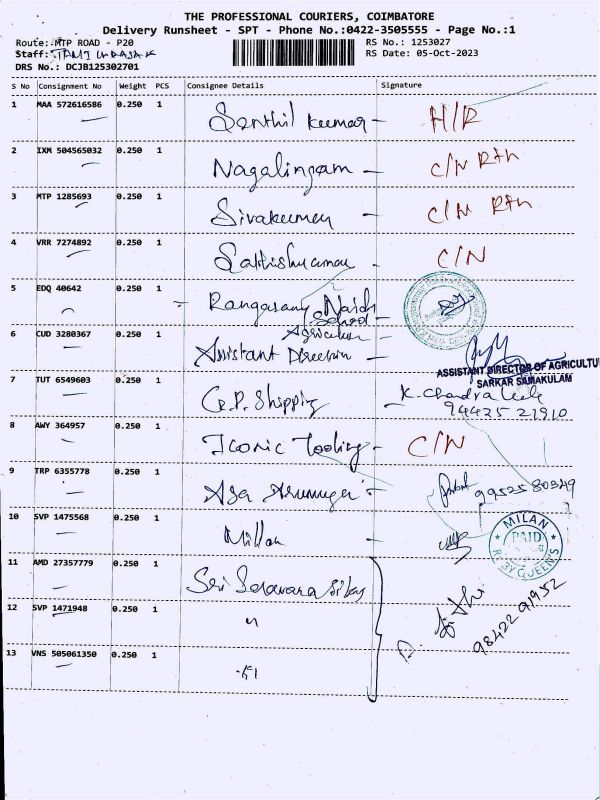 THE PROFESSIONAL COURIERS, COIMBATORE
Delivery Runsheet - SPT - Phone No.:0422-3505555 - Page No.:1
Route: MTP ROAD - P20 RS No.: 1253027
Staff: RS Date: 05-Oct-2023
DRS No.: DCJB125302701
S No Consignment No Weight PCS Consignee Details Signature
1 MAA 572616586 0.250 1 Senthil Kumar - H/R
2 IXM 504565032 0.250 1 Nagalingam - C/N Rtn
3 MTP 1285693 0.250 1 Sivakumar - C/N Rtn
4 VRR 7274892 0.250 1 - C/N
5 EDQ 40642 0.250 1 Rangasamy
School -
6 CUD 3280367 0.250 1 Agriculture
Assistant Direction -
ASSISTANT DIRECTOR OF AGRICULTU
SARKAR SAMAKULAM
7 TUT 6549603 0.250 1 G.P. Shipping K. Chandralele
94425 21910
8 AWY 364957 0.250 1 Iconic Tooling - C/N
9 TRP 6355778 0.250 1 99525 80349
10 SVP 1475568 0.250 1 Millan -
MILAN
PAID
11 AMD 27357779 0.250 1 Sri
12 SVP 1471948 0.250 1 "
98422 91952
13 VNS 505061350 0.250 1